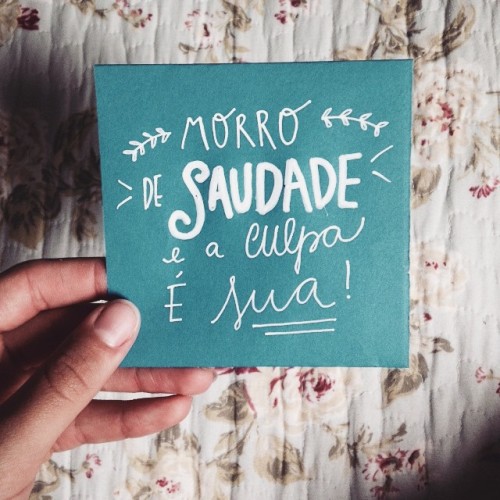 MORRO
DE SAUDADE
e a culpa
É sua!